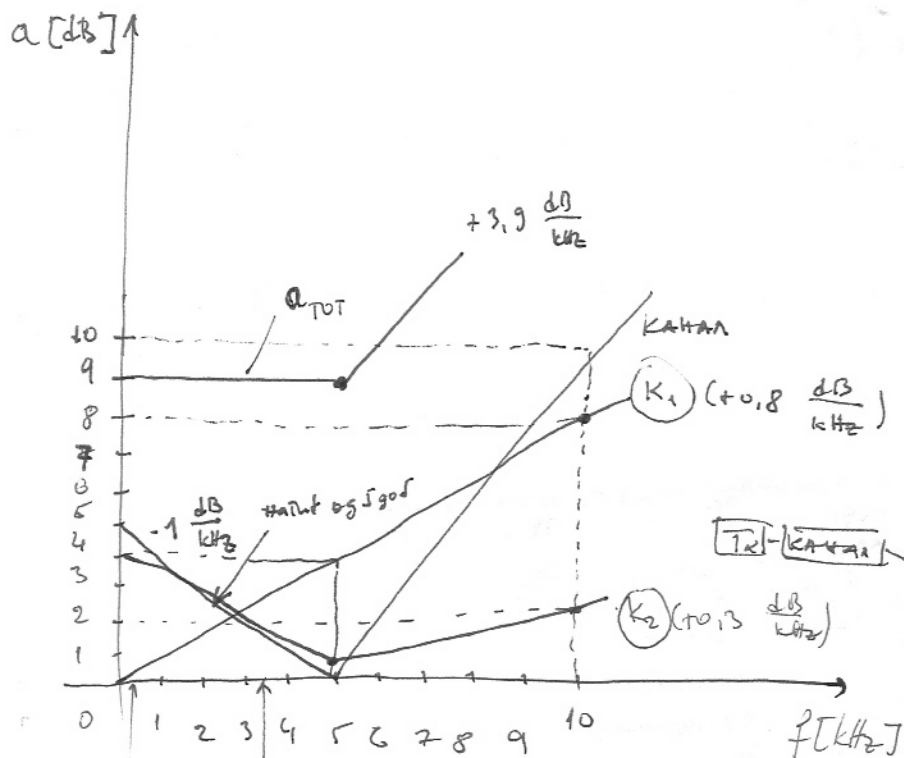 a [dB]
+3,9 dB/kHz
a TOT
КАНАЛ
10
9
8
7
6
5
4
3
2
1
K1 (+0,8 dB/kHz)
-1 dB/kHz
TK - КАНАЛ
K2 (+0,3 dB/kHz)
0 1 2 3 4 5 6 7 8 9 10
f [kHz]